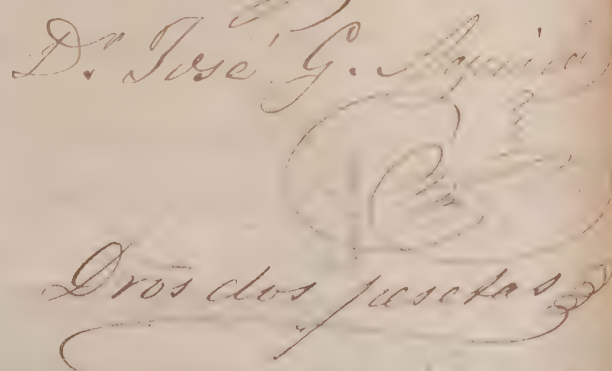 Dr. José G.
Drōs dos pesetas